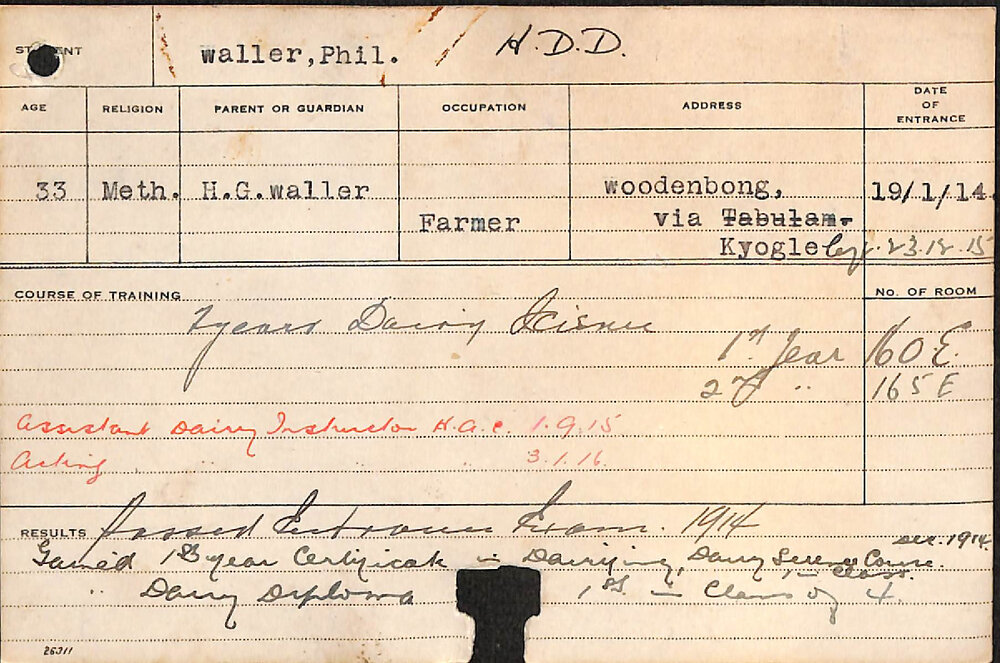 STUDENT waller,Phil. H.D.D.
AGE RELIGION PARENT OR GUARDIAN OCCUPATION ADDRESS DATE OF ENTRANCE
33 Meth. H.G.waller Farmer woodenbong, 19/1/14
via Tabulam.
Kyogle 23.12.15
COURSE OF TRAINING No. OF ROOM
2 years Dairy Science
1st Year 160 E.
2nd " 165 E
Assistant Dairy Instructor H.A.C. 1.9.15
Acting " " 3.1.16.
RESULTS Passed Entrance Exam. 1914
Gained 1st year Certificate in Dairying, Dairy Science Course. Dec. 1914
in Class.
" Dairy Diploma 1st. in Class of 4.
26311